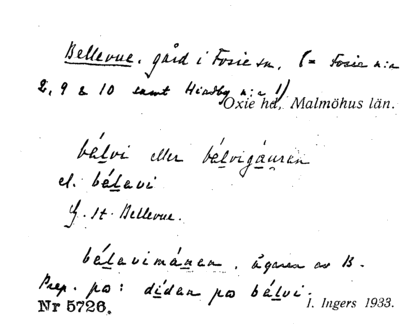 Bellevue, gård i Fosie sn, (= Fosie n:r
2, 9 & 10 samt Hindby n:r 1)
Oxie hd, Malmöhus län.
bélvi eller bélvigáuren
el. bélavi
jf. st. Bellevue.
bélavimánen, ägaren av B.
Prep. på: dídan på bélvi.
Nr 5726.
I. Ingers 1933.